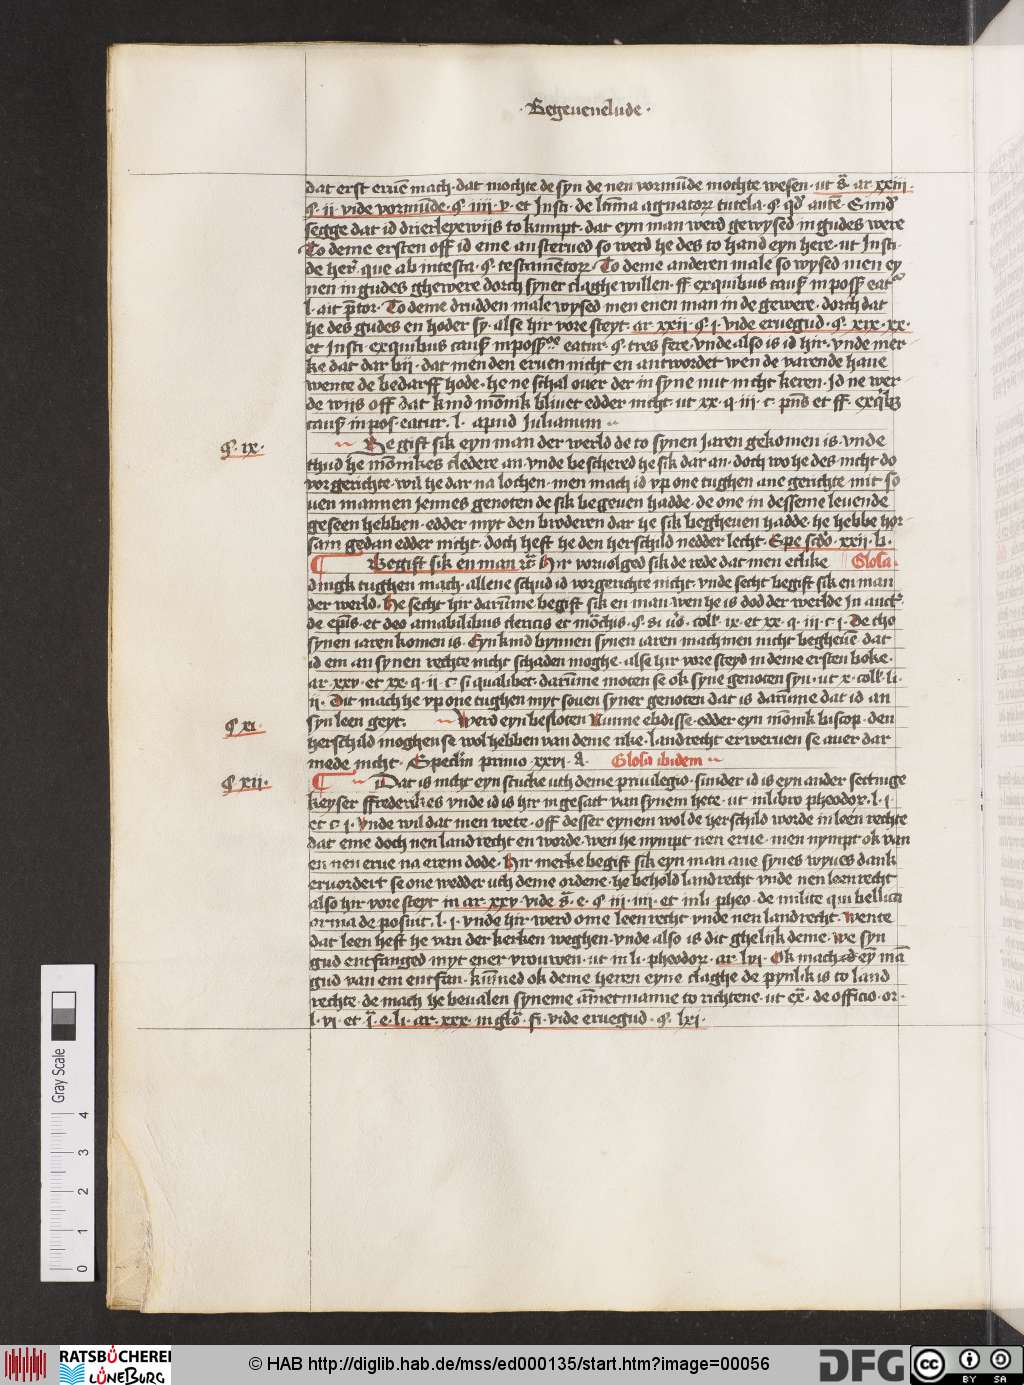 · Begeuenelude ·
dat erst eruē mach · dat mochte de syn de nen vormūde mochte wesen · ut ar xxiii ·
§ · ii · vide vormūde · § · iiii · v · et Insti · de tutela · §
segge dat id drierleyewijs to kumpt · dat eyn man werd gewysed in gudes were
To deme ersten off id eme an sterued so werd he des to hand eyn here · ut Insti ·
de her' que ab intesta · § · · To deme anderen male so wysed men ey
nen in gudes ghewere dorch syner claghe willen · ff exquibus
l · ait · To deme drudden male wysed men enen man in de gewere · dorch dat
he des gudes en hoder sy · alse hir vore steyt · ar xxii · § · i · vide eruegud · § · xix · xx ·
et Insti exquibus eatur · § · tres fere · vnde also is id hir · vnde mer
ke dat dar bii · dat men den eruen nicht en antwordet wen de varende haue
wente de bedarff hode · he ne schal ouer der in syne nut nicht keren · Id ne wer
de wijs off dat kind mōnik bliuet edder nicht · ut xx · q · iii · c · et ff ·
in pos eatur · l · apud Iulianum
§ · ix · Begift sik eyn man der werld de to synen Jaren gekomen is · vnde
thud he mōnikes cledere an · vnde beschered he sik dar an · doch wo he des nicht do
vor gerichte · wil he dar na lochen · men mach id vp one tughen ane gerichte mit so
uen mannen Jennes genoten de sik begeuen hadde · de one in desseme leuende
geseen hebben · edder myt den broderen dar he sik begheuen hadde · he hebbe hor
sam gedan edder nicht · doch heft he den herschild nedder lecht · Spe scdo · xxii · b ·
¶ Begift sik en man Hir vorvolged sik de rede dat men etlike Glosa ·
dingk tughen mach · allene schud id vorgerichte nicht · vnde secht begift sik en man
der werld · He secht hir darūme begift sik en man · wen he is dod der werlde In
de · et deo amabilibus clericis et · § · si · coll · ix · et xx · q · iii · c · i · De tho
synen iaren komen is · Eyn kind bynnen synen iaren mach men nicht begheuē dat
id em an synen rechte nicht schaden moghe · alse hir vore steyd in deme ersten boke ·
ar · xxv · et xx · q · ii · c · si qualibet · darūme moten se ok syne genoten syn · ut x · coll · li ·
ii · Dit mach he vp one tughen myt souen syner genoten dat is darūme dat id an
syn leen geyt ·
§ xi · Werd eyn besloten Nunne ebdisse · edder eyn mōnik biscop · den
herschild moghen se wol hebben van deme rike · landrecht erweruen se auer dar
mede nicht · primo xxvi · a · Glosa ibidem
§ xii · ¶ Dat is nicht eyn stucke uth deme priuilegio · sunder id is eyn ander settinge
keyser ffrederikes vnde id is hir in gesatt van synem hete · ut in libro pheodor · l · i ·
et c · i · Vnde wil dat men wete · off desser eynem wol de herschild worde in leen rechte
dat eme doch nen landrecht en worde · wen he nympt nen erue · men nympt ok van
en nen erue na erem dode · Hir merke begift sik eyn man ane synes wyues dank
eruordert se one wedder uth deme ordene · he behold landrecht vnde nen leenrecht
also hir vore steyt in ar · xxv · vide · e · § · iii · iiii · et in li · pheo · de milite qui bellica
arma de posuit · l · i · vnde hir werd ome leen recht vnde nen landrecht · Wente
dat leen heft he van der kerken weghen · vnde also is dit ghelijk deme · We syn
gud entfanged myt ener vrouwen · ut in li · pheodor · ar lvi · Ok mach id ey mā
gud van em entfan · kunned ok deme heren eyne claghe de pynlik is to land
rechte · de mach he beualen syneme āmetmanne to richtene · ut · de officio · or ·
l · vi · et · e · li · ar · xxx · in · vide eruegud · § · lxi ·
Gray Scale
0 1 2 3 4
RATSBÜCHEREI LÜNEBURG
© HAB http://diglib.hab.de/mss/ed000135/start.htm?image=00056
DFG
cc BY SA